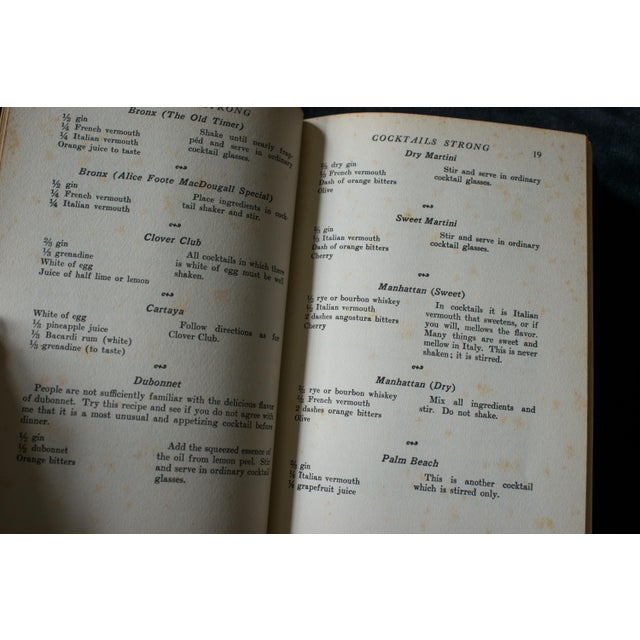 STRONG
Bronx (The Old Timer)
½ gin
¼ French vermouth
¼ Italian vermouth
Orange juice to taste
Shake until nearly frap-
péd and serve in ordinary
cocktail glasses.
Bronx (Alice Foote MacDougall Special)
½ gin
¼ French vermouth
¼ Italian vermouth
Place ingredients in cock-
tail shaker and stir.
Clover Club
⅔ gin
⅓ grenadine
White of egg
Juice of half lime or lemon
All cocktails in which there
is white of egg must be well
shaken.
Cartaya
White of egg
⅓ pineapple juice
⅓ Bacardi rum (white)
⅓ grenadine (to taste)
Follow directions as for
Clover Club.
Dubonnet
People are not sufficiently familiar with the delicious flavor
of dubonnet. Try this recipe and see if you do not agree with
me that it is a most unusual and appetizing cocktail before
dinner.
½ gin
½ dubonnet
Orange bitters
Add the squeezed essence of
the oil from lemon peel. Stir
and serve in ordinary cocktail
glasses.
COCKTAILS STRONG 19
Dry Martini
dry gin
French vermouth
Dash of orange bitters
Olive
Stir and serve in ordinary
cocktail glasses.
Sweet Martini
gin
Italian vermouth
Dash of orange bitters
Cherry
Stir and serve in ordinary
cocktail glasses.
Manhattan (Sweet)
rye or bourbon whiskey
Italian vermouth
2 dashes angostura bitters
Cherry
In cocktails it is Italian
vermouth that sweetens, or if
you will, mellows the flavor.
Many things are sweet and
mellow in Italy. This is never
shaken; it is stirred.
Manhattan (Dry)
rye or bourbon whiskey
French vermouth
2 dashes orange bitters
Olive
Mix all ingredients and
stir. Do not shake.
Palm Beach
gin
¼ Italian vermouth
grapefruit juice
This is another cocktail
which is stirred only.